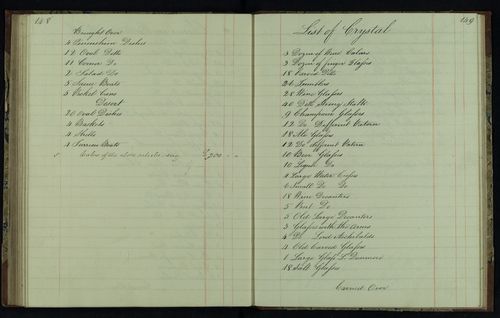 148
Brought Over
4 Dishes
12 Oval Ditto
11 Corner Do
2 Salad Do
5 Sauce Boats
Desert
20 Oval Dishes
4 Baskets
4 Shells
Value of the above articles say £300 " -
149
List of Crystal
3 Dozen of Wine
3 Dozen of finger Glasses
18 Carved Ditto
26 Tumblers
28 Wine Glasses
40 Ditto Strong Stalks
9 Champain Glasses
12 Do Different Pattern
18 Ale Glasses
12 Do different Pattern
10 Beer Glasses
10 Liquer Do
4 Large Water
6 Small Do Do
18 Wine Decanters
5 Do
5 Old Large Decanters
3 Glasses with the Arms
4 Do Lord Archibalds
4 Old Carved Glasses
1 Large Glass Ld Dunmore
18 Salt Glasses
Carried Over